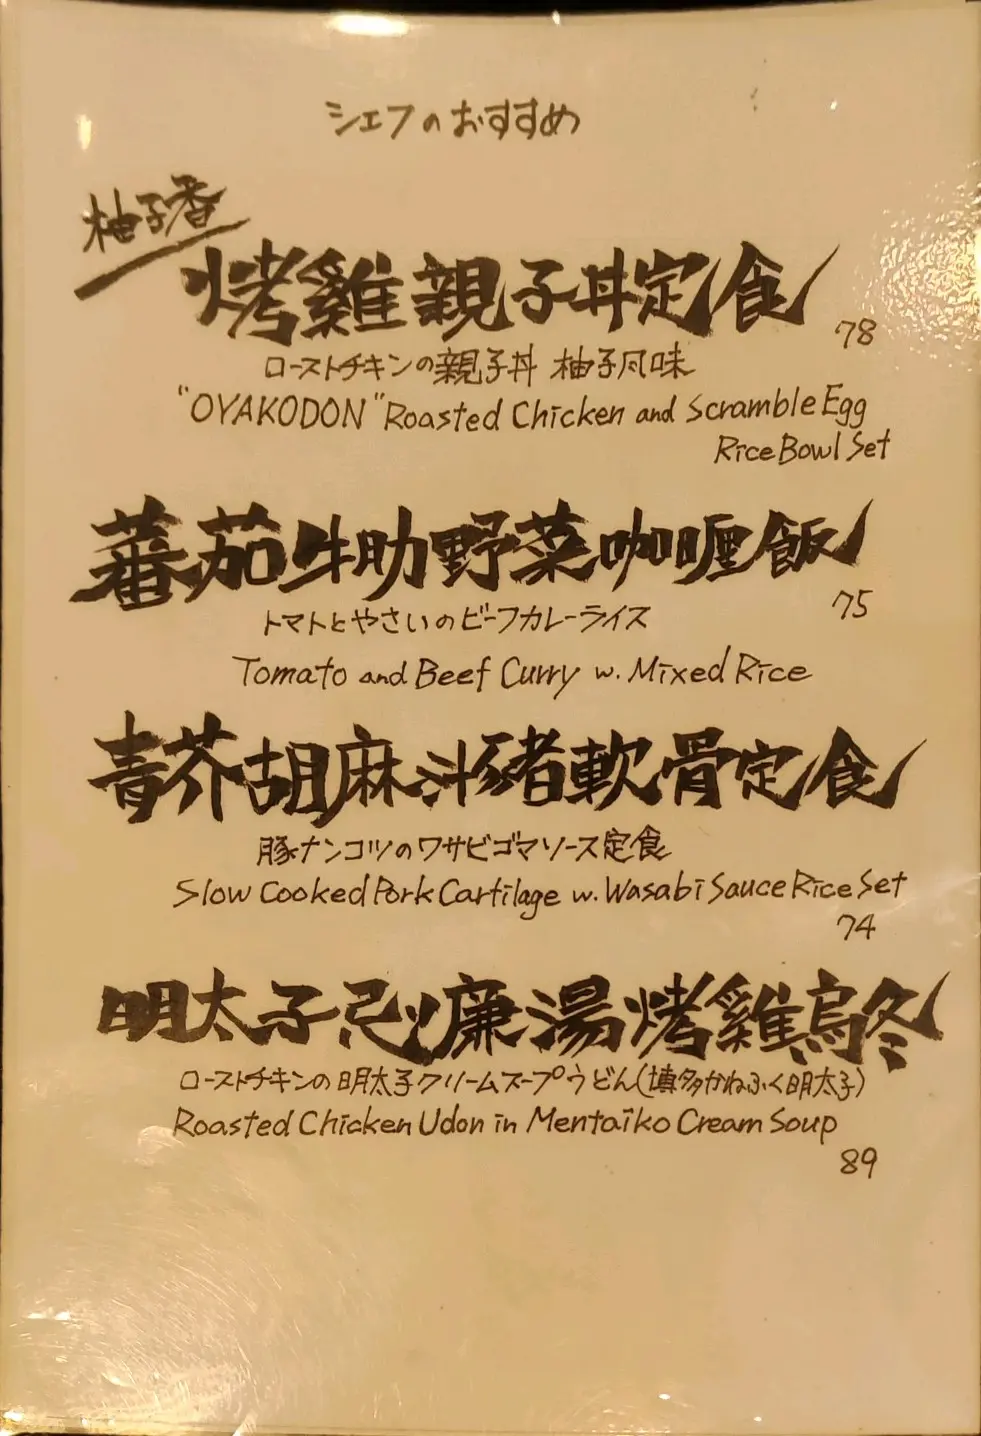 シェフのおすすめ
柚子香
烤雞親子丼定食
78
ローストチキンの親子丼 柚子風味
"OYAKODON" Roasted Chicken and Scramble Egg
Rice Bowl Set
蕃茄牛肋野菜咖喱飯
75
トマトとやさいのビーフカレーライス
Tomato and Beef Curry w. Mixed Rice
青芥胡麻汁豬軟骨定食
豚ナンコツのワサビゴマソース定食
Slow Cooked Pork Cartilage w. Wasabi Sauce Rice Set
74
明太子忌廉湯烤雞烏冬
ローストチキンの明太子クリームスープうどん(博多かねふく明太子)
Roasted Chicken Udon in Mentaiko Cream Soup
89